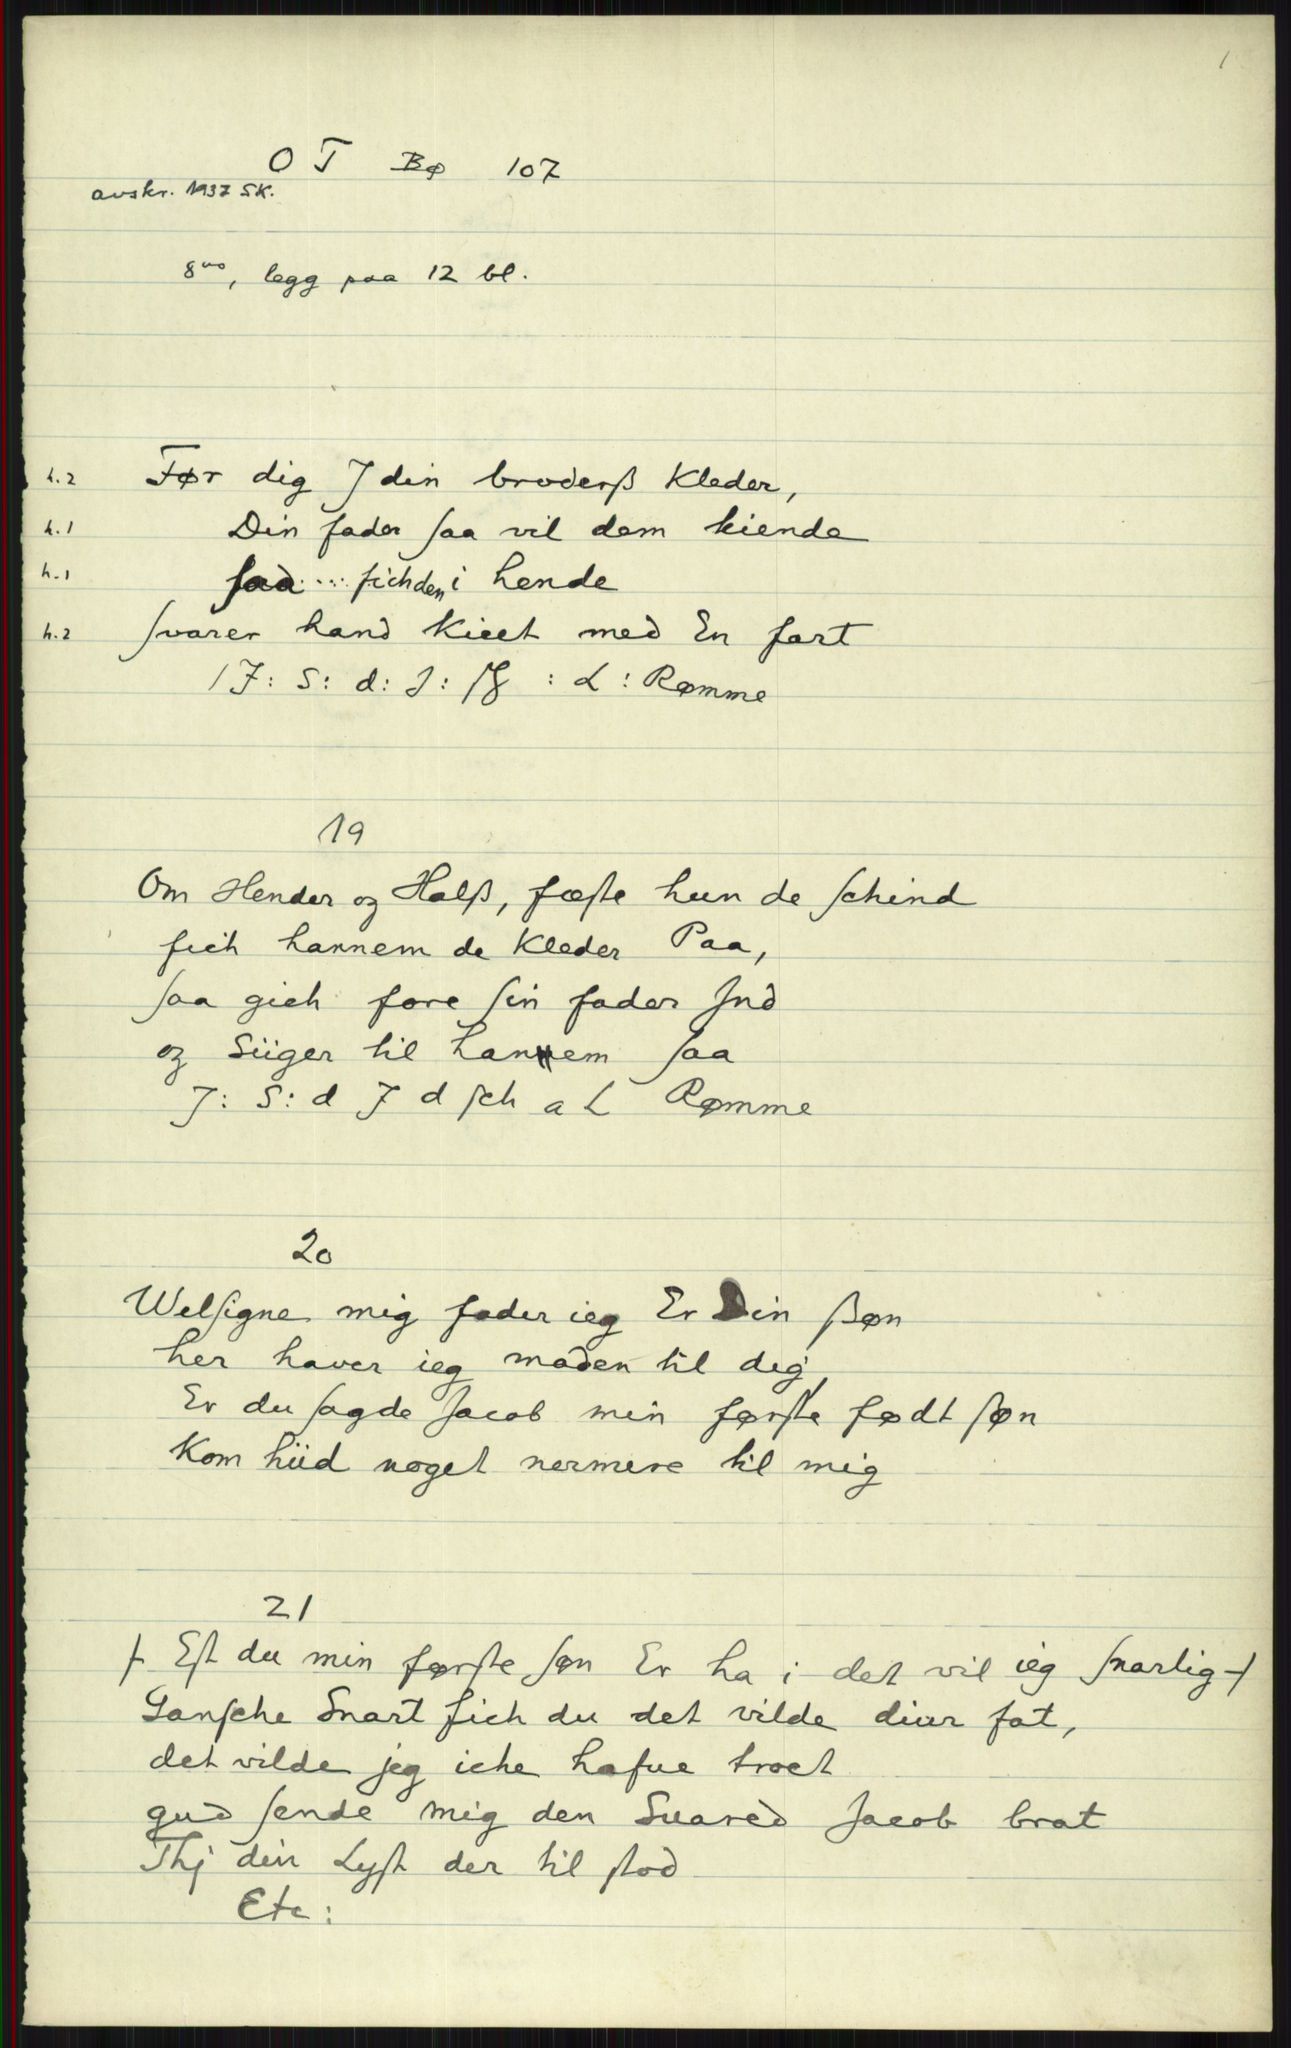 1
O T Bø 107
avskr. 1937 SK.
8vo, legg paa 12 bl.
h.2 Før dig J din broderß Kleder,
h.1 Din fader ſaa vil dem kiende
h.1 ſaa .... fich den i hende
h.2 ſvarer hand kieet med En fart
J: S: d: J: : L: Rømme
19
Om Hender og Halß, fæſte hun de ſchind
fich hannem de Kleder Paa,
ſaa gich fore ſin fader Jnd
og Siiger til hannem ſaa
J: S: d J d ſch a L Rømme
20
Welſigne mig fader ieg Er Din ßøn
her haver ieg maden til dig
Er du ſagde Jacob min førſte født ſøn
Kom hiid noget nermere til mig
21
Eſt du min førſte ſøn Er ha i det vil ieg ſnarlig
Ganſche Snart fich du det vilde diur fat,
det vilde jeg iche hafue troet
gud ſende mig den Suared Jacob brat
Thj din Lyſt der til ſtod
Etc: